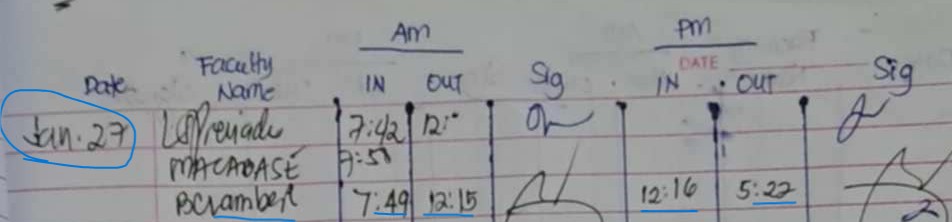 Am Pm
DATE
Date Faculty Name IN OUT Sig IN OUT Sig
Jan. 27 7:42 12:
MACABASE 7:50
BCrambel 7:49 12:15 12:16 5:22